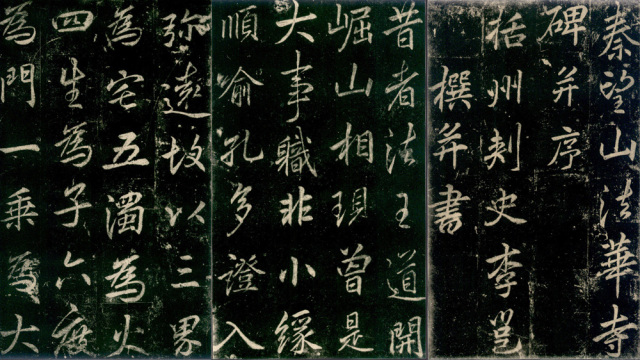 秦望山法華寺
碑并序
括州刺史李邕
撰并書
昔者法王道開
崛山相現曾是
大事職非小緣
順喻孔多證入
弥遠故以三界
為宅五濁為火
四生為子六度
為門一乘為大